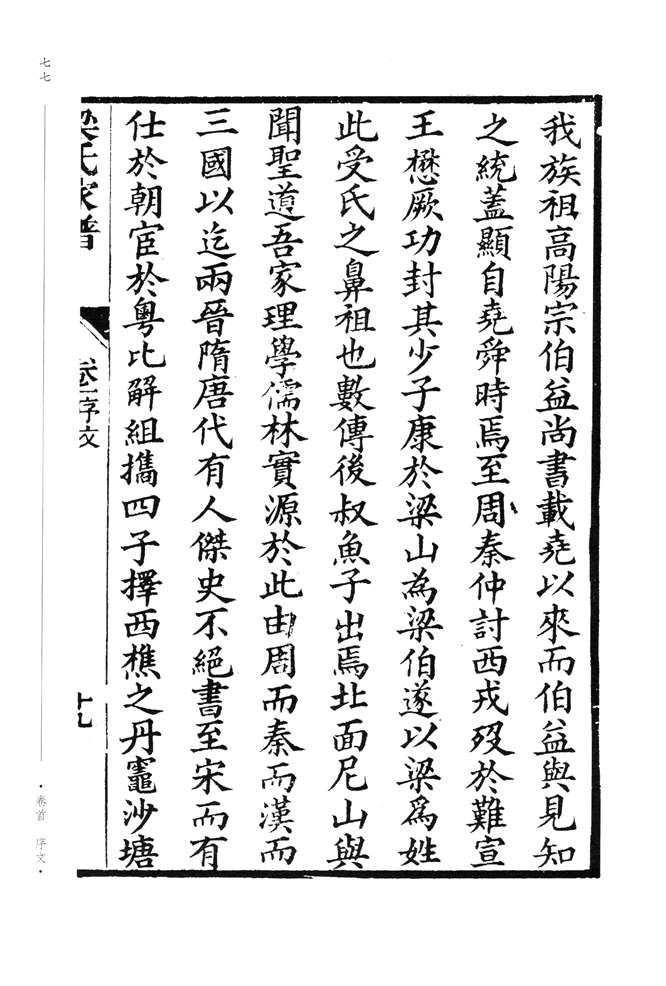 我族祖高陽宗伯益尚書載堯以來而伯益與見知
之統蓋顯自堯舜時焉至周秦仲討西戎歿於難宣
王懋厥功封其少子康於梁山為梁伯遂以梁爲姓
此受氏之鼻祖也數傳後叔魚子出焉北面尼山與
聞聖道吾家理學儒林實源於此由周而秦而漢而
三國以迄兩晉隋唐代有人傑史不絕書至宋而有
仕於朝宦於粵比解組攜四子擇西樵之丹竈沙塘
梁氏家譜
卷一序文
十九
七七
·卷首 序文·